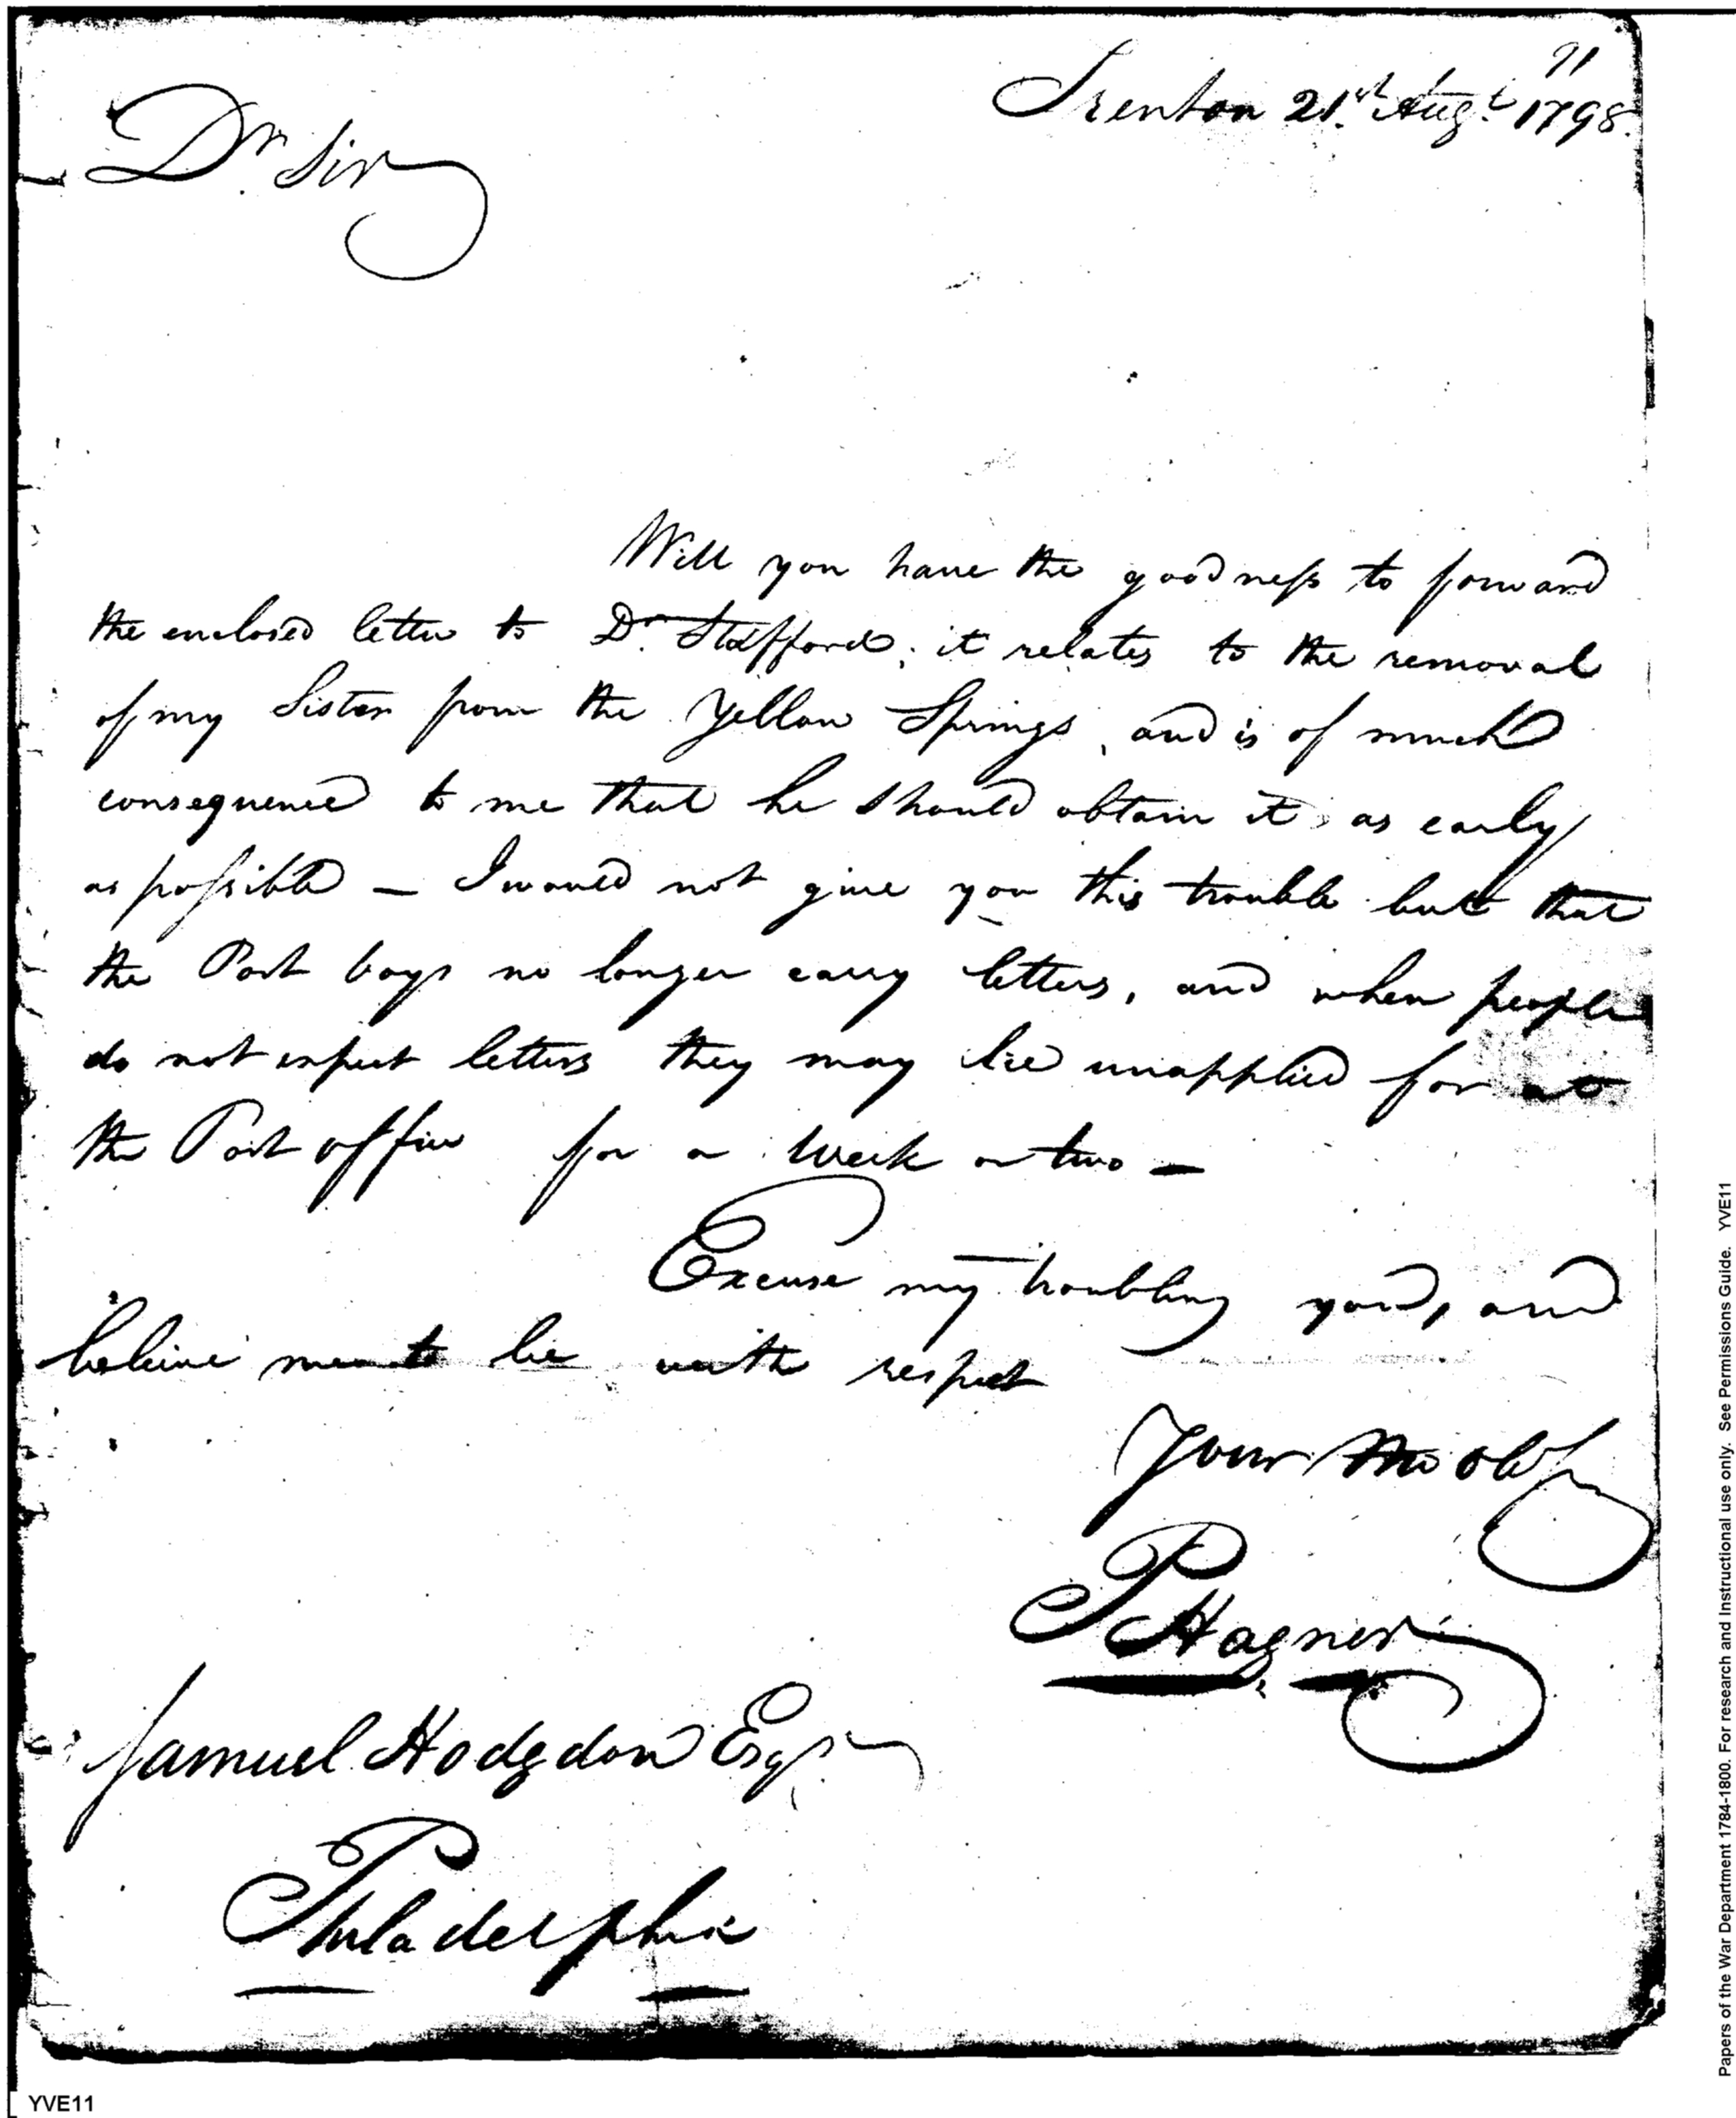 91
Trenton 21st Augt 1798.
Dr. Sir
Will you have the goodness to forward
the enclosed letter to Dr. Stafford, it relates to the removal
of my Sister from the Yellow Springs, and is of much
consequence to me that he should obtain it as early
as possible — I would not give you this trouble but that
the Post boys no longer carry letters, and when people
do not expect letters they may lie unapplied for at
the Post office for a week or two —
Excuse my troubling you, and
beleive me to be with respect
Your Mo obt
P Hagner
Samuel Hodgdon Esqr.
Philadelphia
YVE11
Papers of the War Department 1784-1800. For research and Instructional use only. See Permissions Guide. YVE11